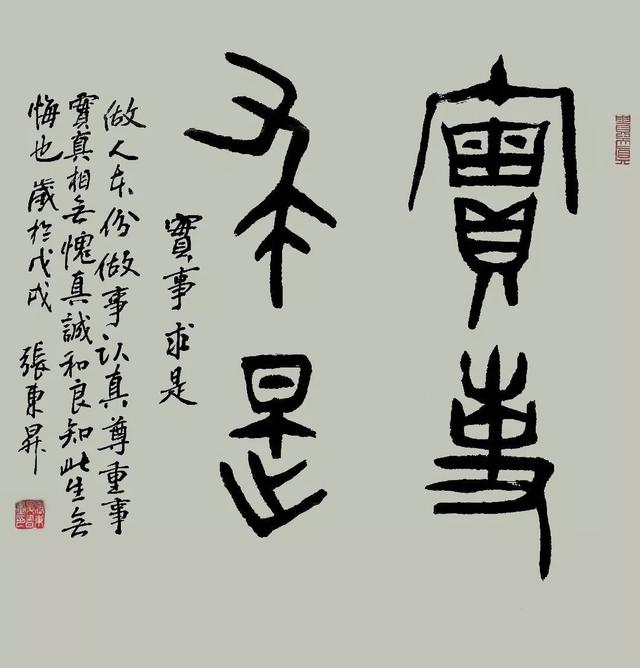 實事
求是
實事求是
做人本份做事认真尊重事
實真相無愧真誠和良知此生無
悔也歲於戊戌 張東昇